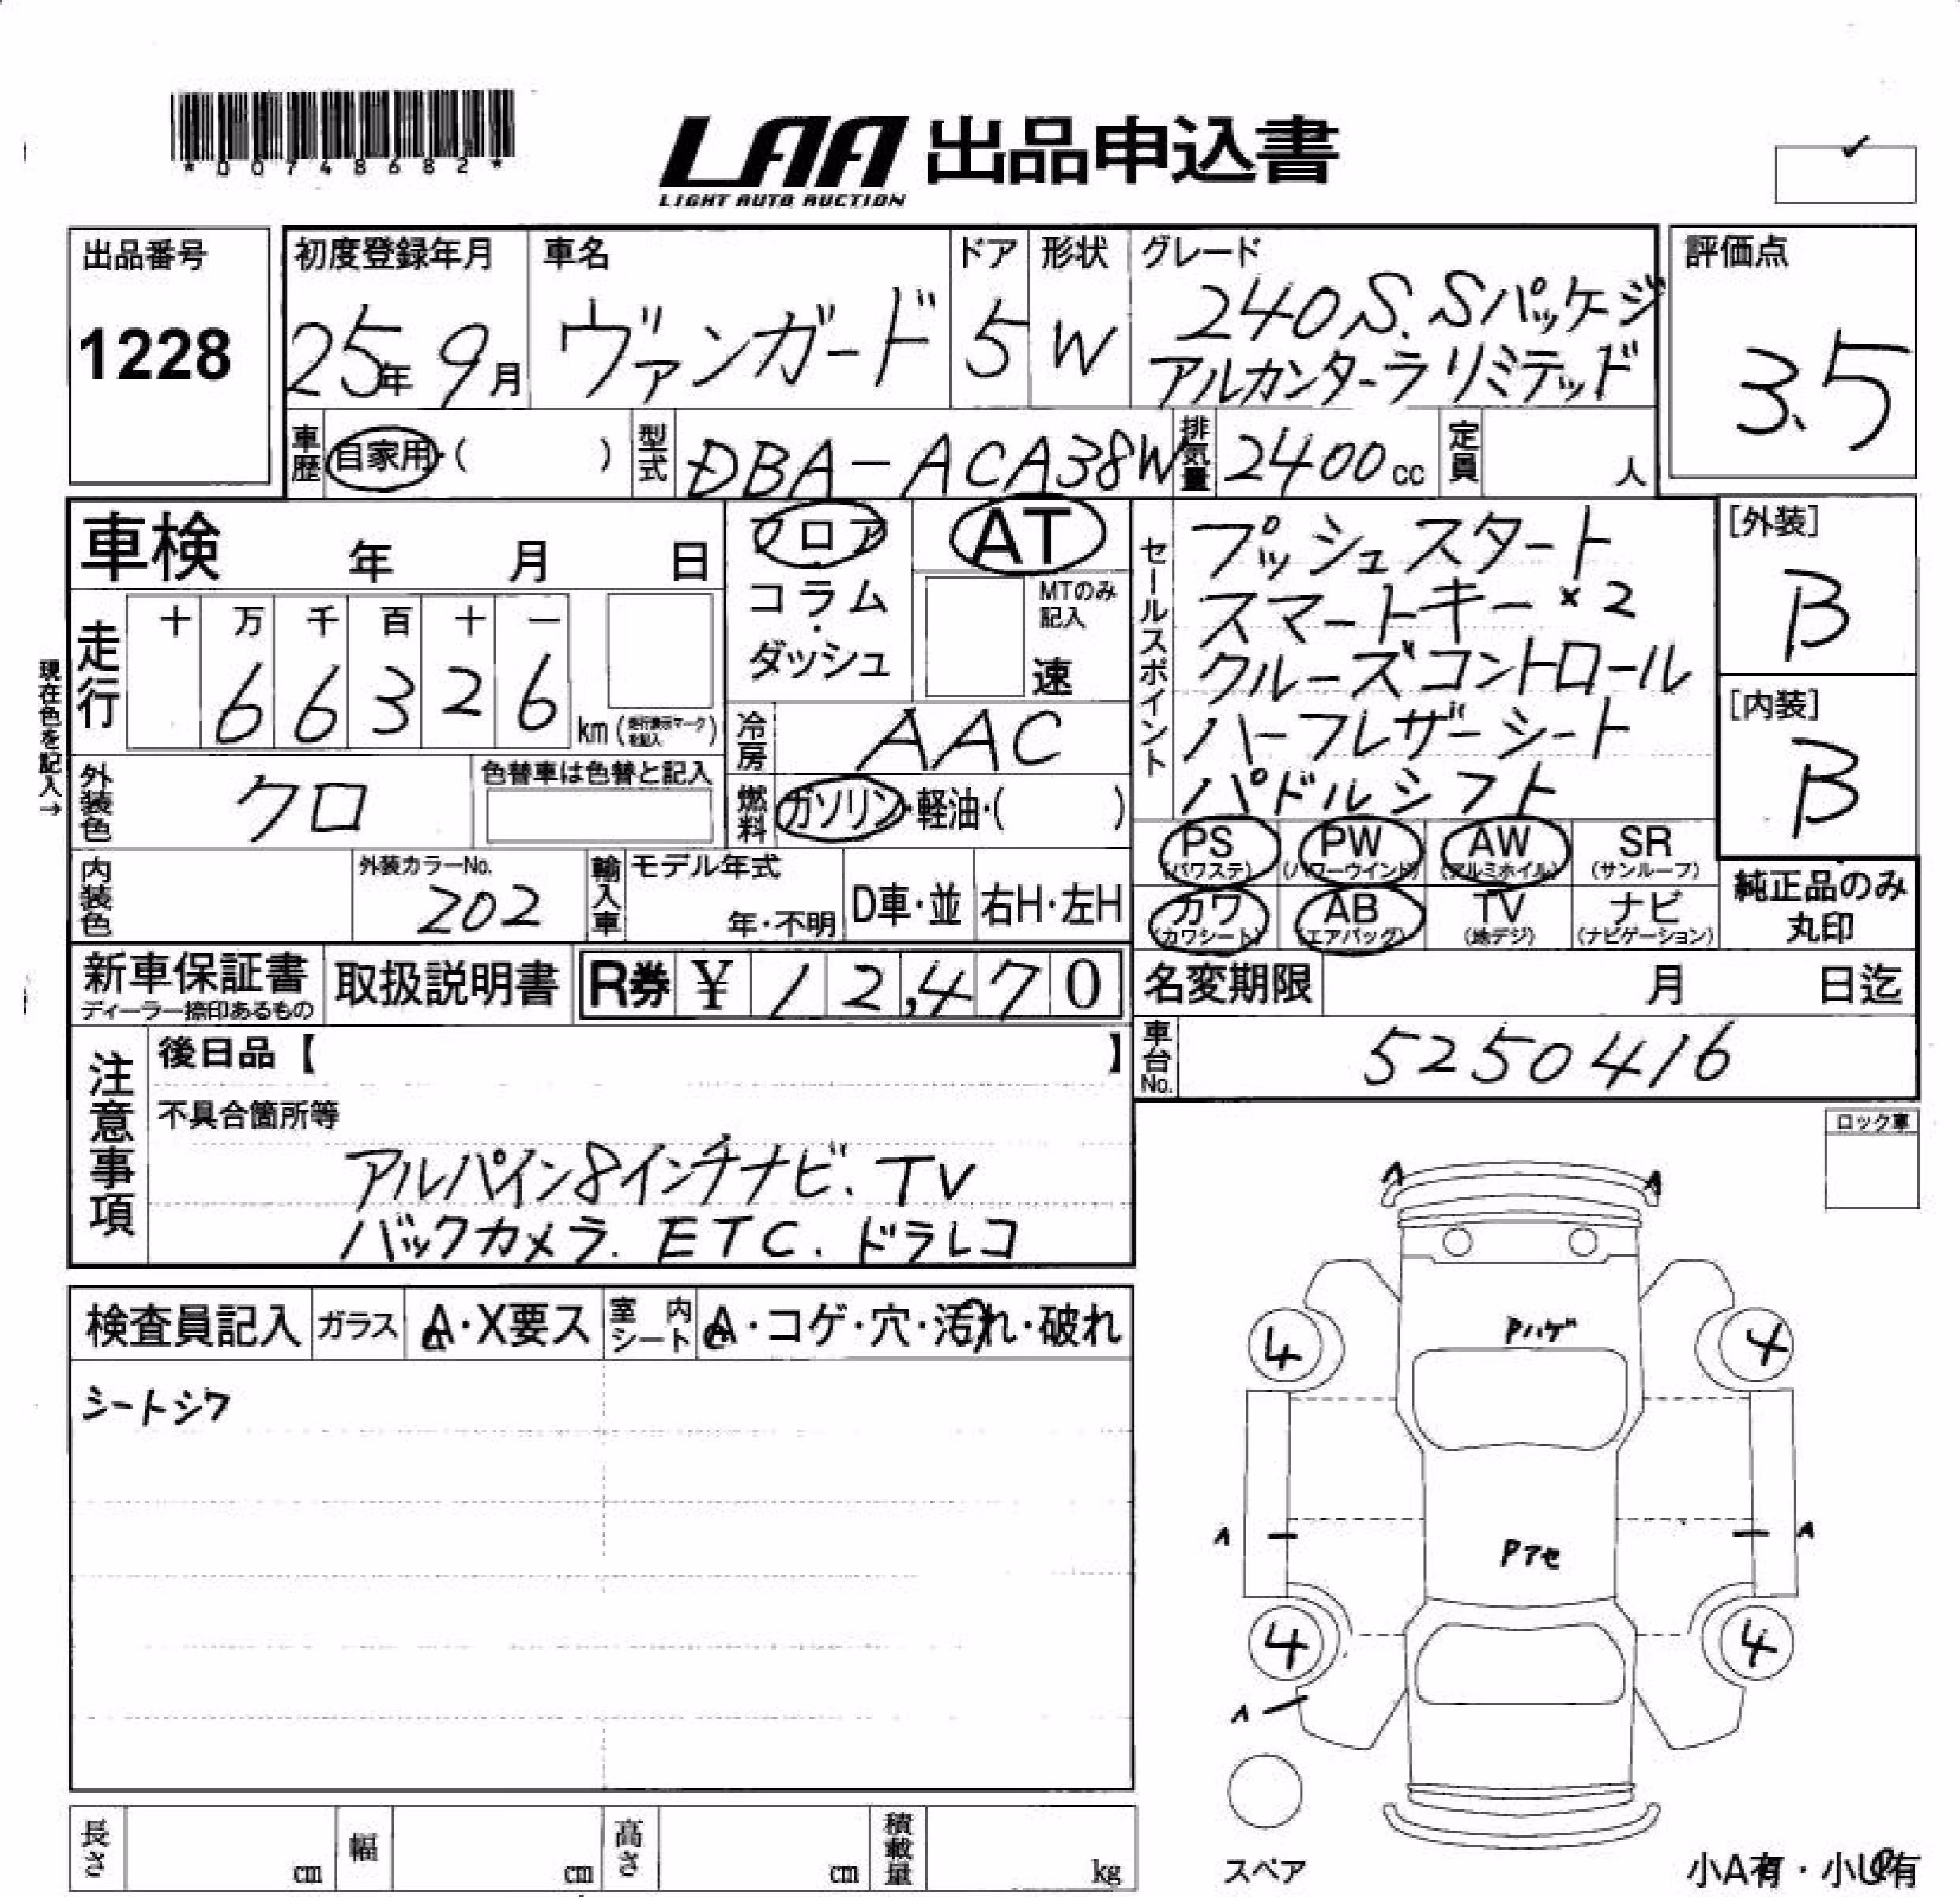 *00748682*
LAA 出品申込書
LIGHT AUTO AUCTION
出品番号
1228
初度登録年月
25年9月
車名
ヴァンガード
ドア
5
形状
W
グレード
240S.Sパッケージ
アルカンターラリミテッド
評価点
3.5
車歴
自家用・( )
型式
DBA-ACA38W
排気量
2400cc
定員
人
車検 年 月 日
フロア・コラム・ダッシュ
AT
MTのみ記入
速
走行
十 万 千 百 十 一
6 6 3 2 6
km(走行表示マークを記入)
現在色を記入→
冷房
AAC
外装色
クロ
色替車は色替と記入
燃料
ガソリン・軽油・( )
内装色
外装カラーNo.
202
輸入車
モデル年式
年・不明
D車・並
右H・左H
セールスポイント
プッシュスタート
スマートキー×2
クルーズコントロール
ハーフレザーシート
パドルシフト
[外装]
B
[内装]
B
PS (パワステ)
PW (パワーウインド)
AW (アルミホイル)
SR (サンルーフ)
カワ (カワシート)
AB (エアバッグ)
TV (地デジ)
ナビ (ナビゲーション)
純正品のみ
丸印
新車保証書
ディーラー捺印あるもの
取扱説明書
R券 ¥ 12,470
名変期限 月 日迄
車台No.
5250416
注意事項
後日品【 】
不具合箇所等
アルパイン8インチナビ、TV
バックカメラ.ETC.ドラレコ
ロック車
検査員記入
ガラス
A・X要ス
室内シート
A・コゲ・穴・汚れ・破れ
シートシワ
A
A
Pハゲ
4
4
A
A
Pアセ
4
4
A
スペア
長さ cm
幅 cm
高さ cm
積載量 kg
小A有・小U有